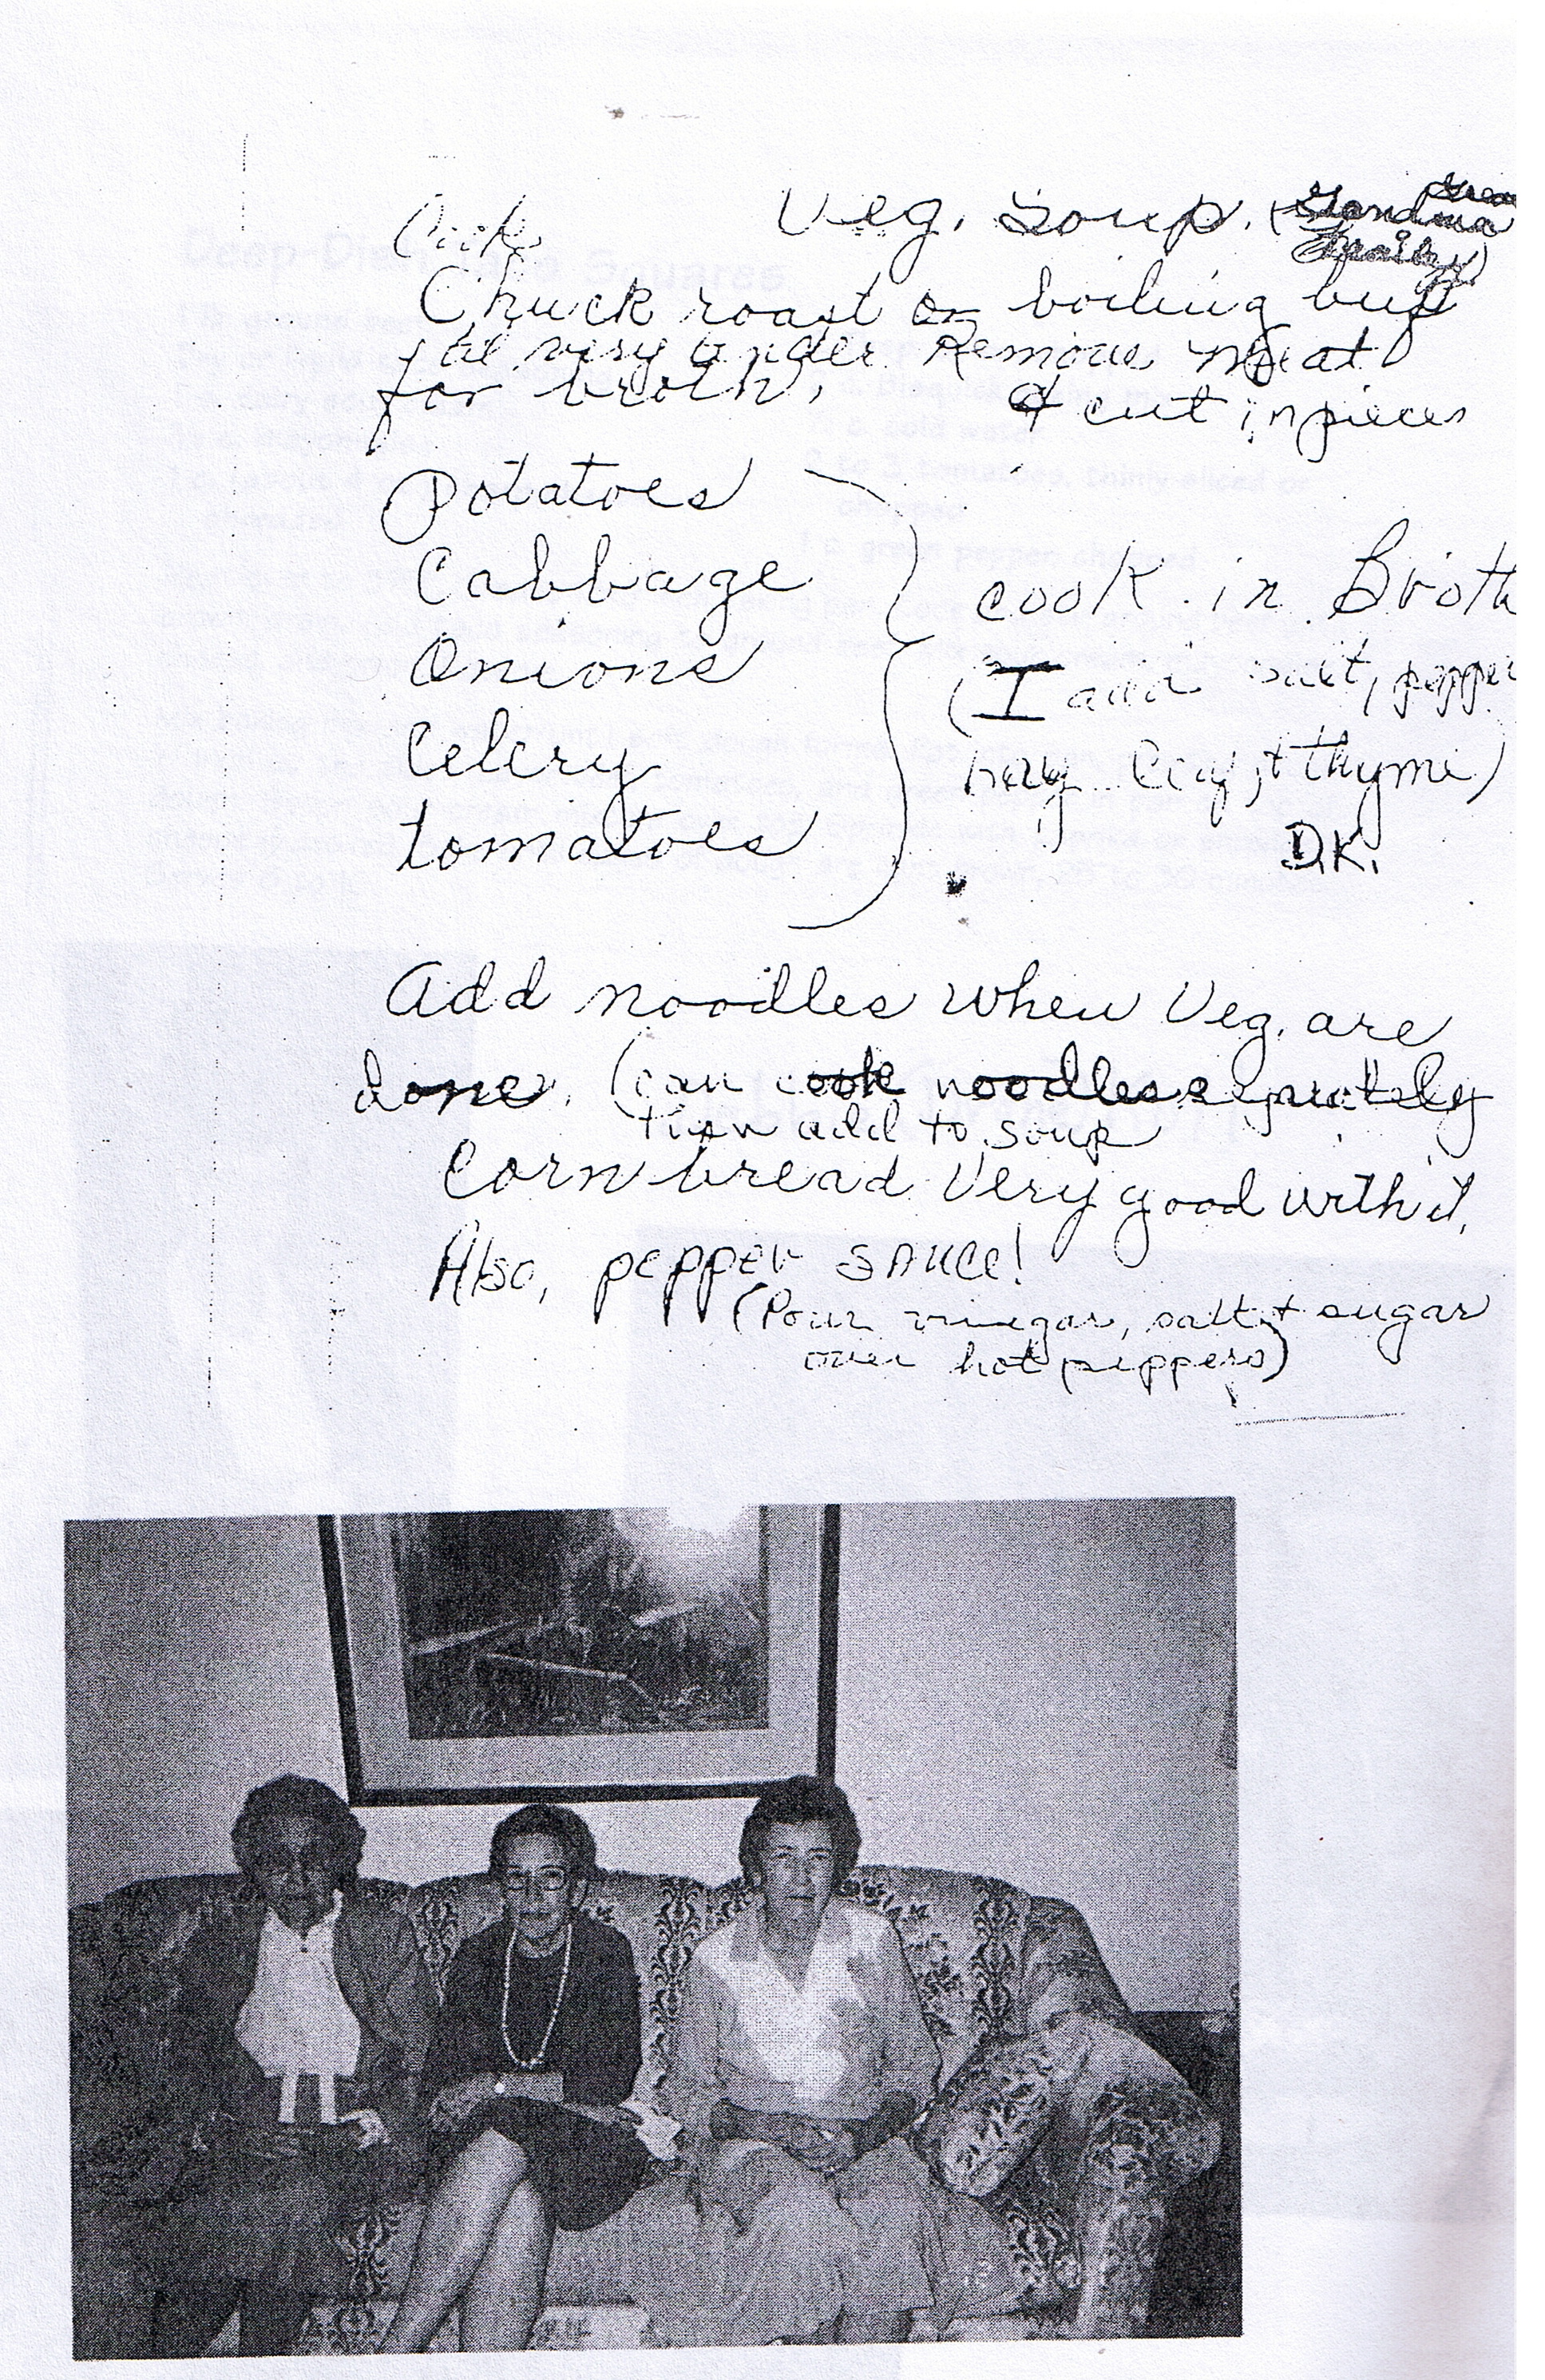 Cook Veg. Soup. (Grandma
Chuck roast or boiling beef
til very tender Remove meat
for broth, & cut in pieces
Potatoes
Cabbage
Onions
Celery
tomatoes
cook in Broth
(I add salt, pepper
bay leaf, + thyme)
D.K.
Add noodles when Veg. are
done. (can cook noodles seperately
then add to soup
Corn bread Very good with it.
Also, pepper sauce!
(Pour vinegar, salt + sugar
over hot peppers)